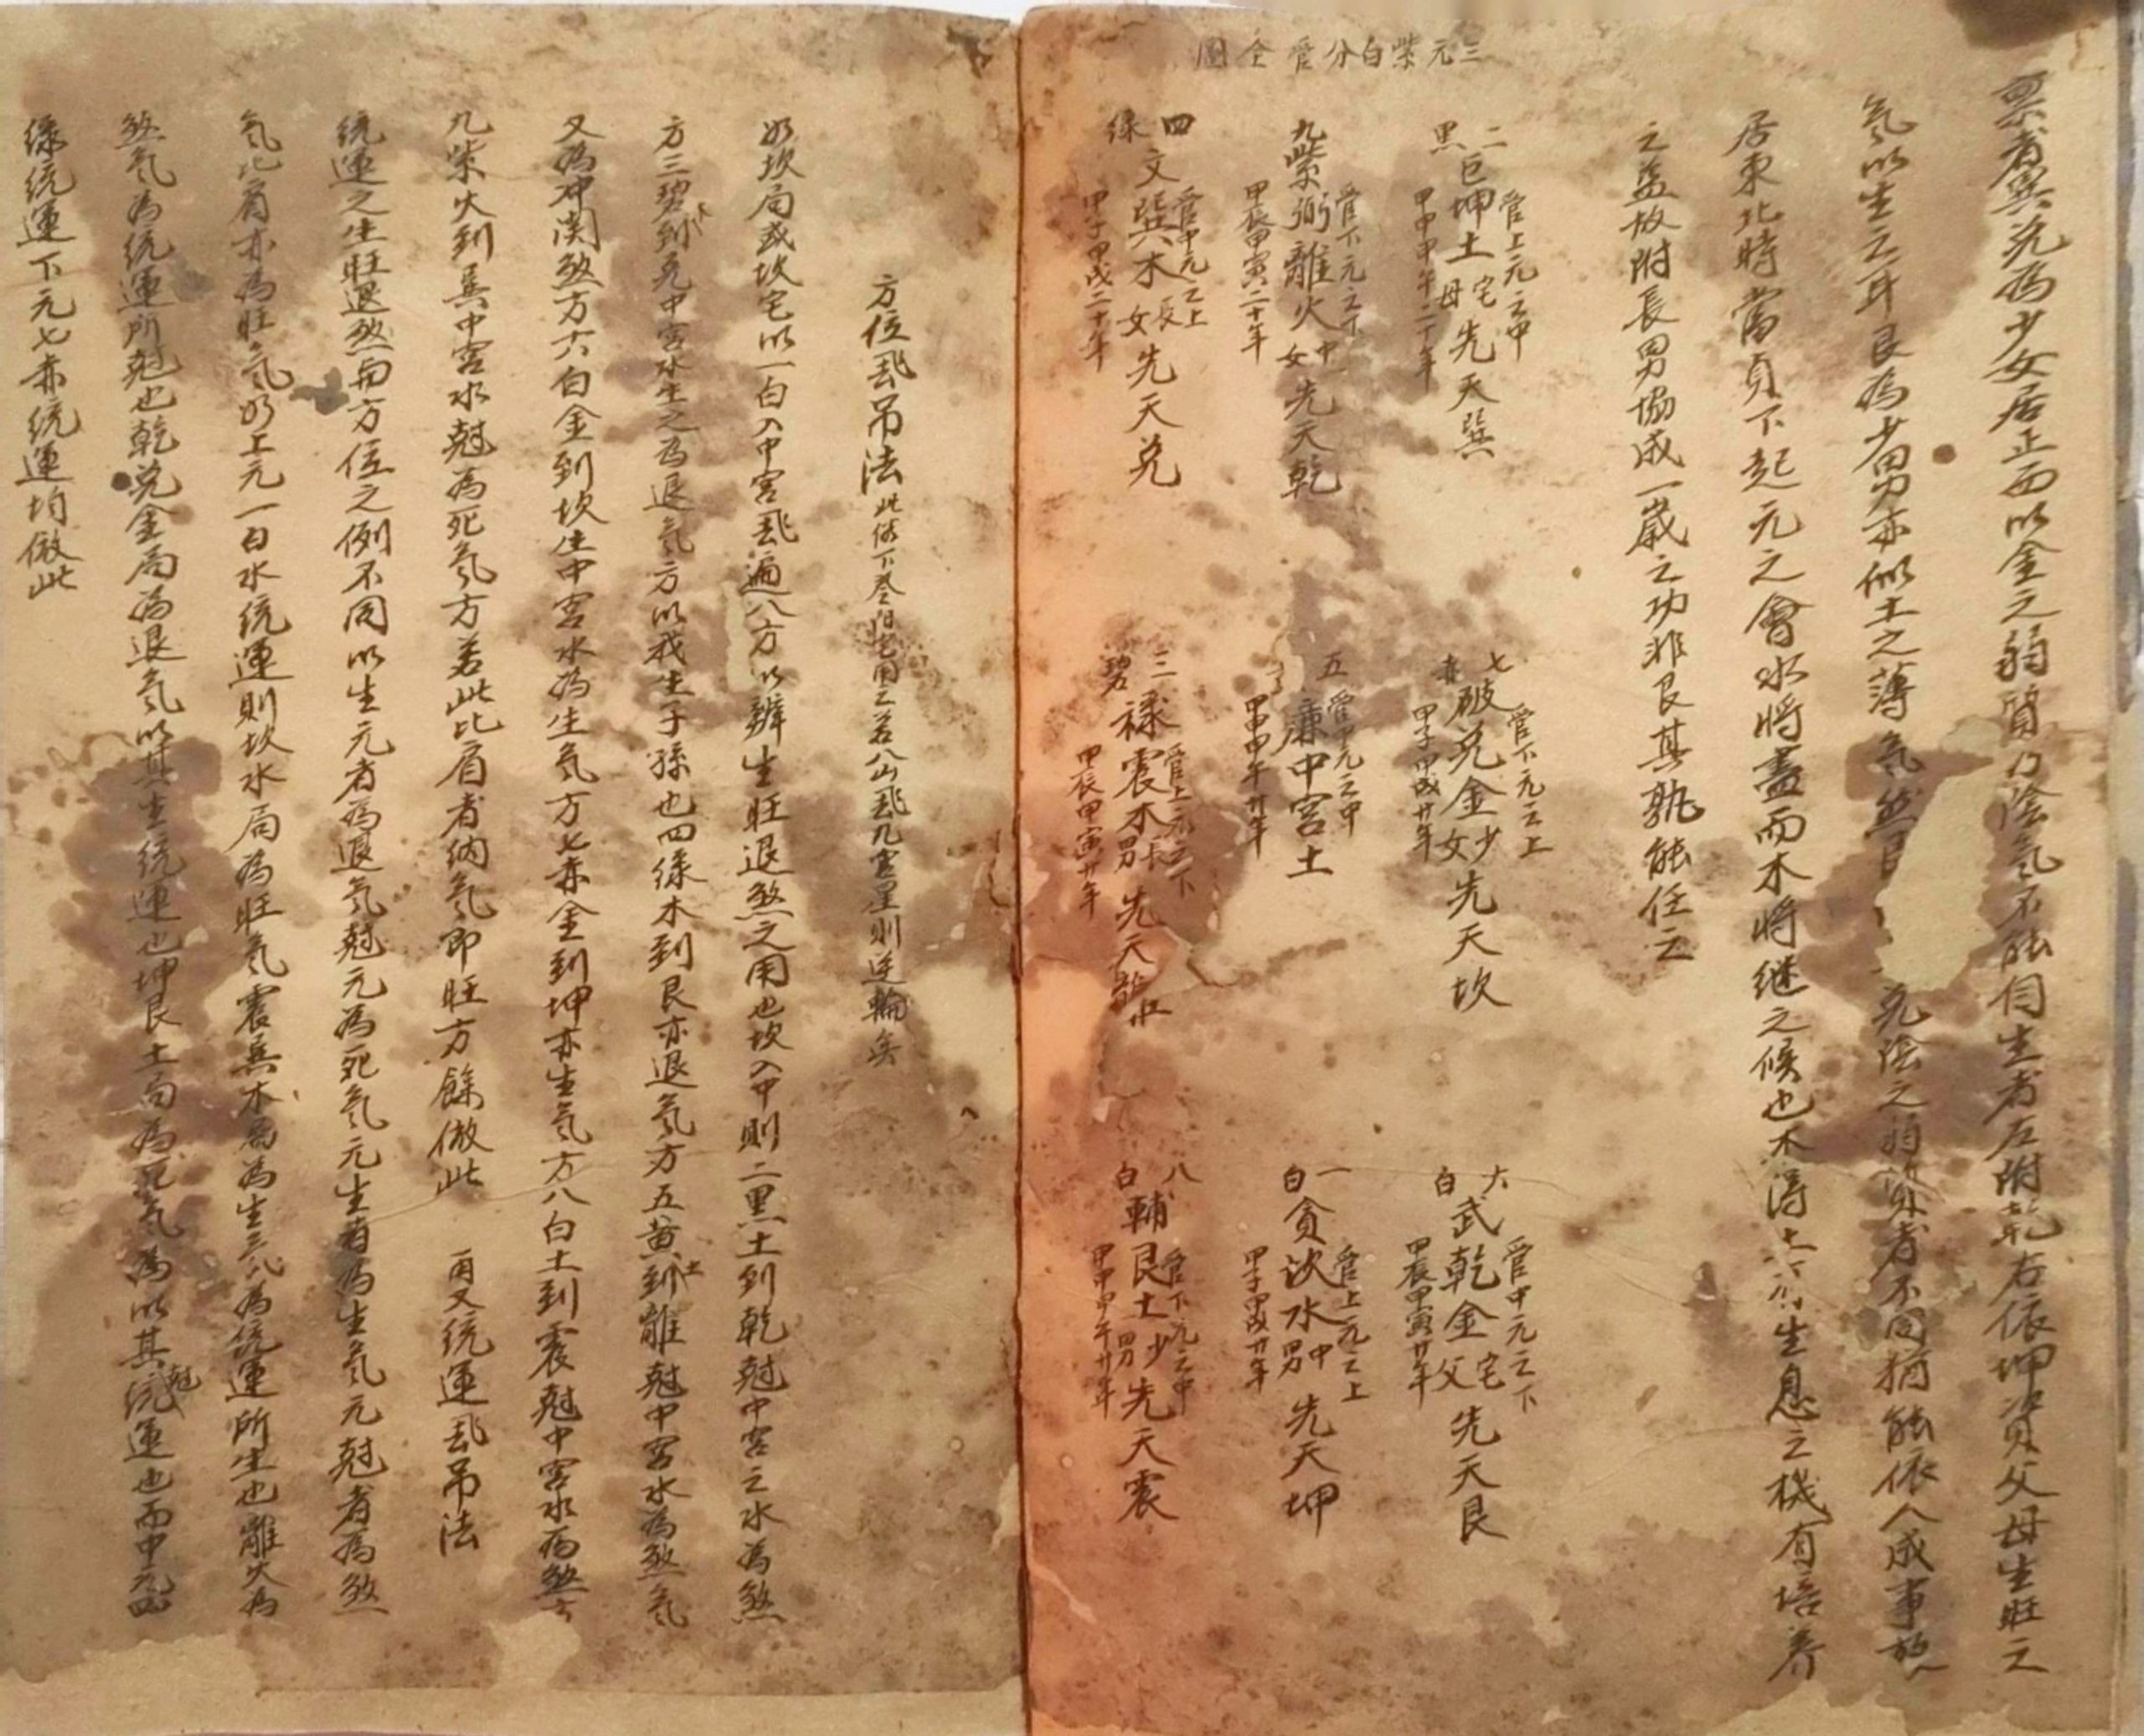 三元紫白分管全圖
異者異兑為少女居正西以金之弱質乃陰氣不能自生者左附乾右依坤資父母生旺之
氣以生之耳艮為少男亦似土之薄氣然 兑陰之弱質者不同猶能依人成事
居東北時當貞下起元之會水將盡而木將继之候也木得土 生息之機有培养
之益故附長男協成一歲之功非艮其孰能任之
二黑巨坤土宅母先天巽 管上元之中甲申甲午二十年
七赤破兑金少女先天坎 管下元之上甲子甲戌廿年
六白武乾金宅父先天艮 管中元之下甲辰甲寅廿年
九紫弼離火中女先天乾 管下元之下甲辰甲寅二十年
五廉中宮土 管中元之中甲申甲午廿年
一白貪坎水中男先天坤 管上元之上甲子甲戌廿年
四綠文巽木長女先天兑 管中元之上甲子甲戌二十年
三碧祿震木長男先天離 管上元之下甲辰甲寅廿年
八白輔艮土少男先天震 管下元之中甲申甲午廿年
方位飛吊法 此係下卷陽宅用之若八山飛九宮星則逆輪矣
如坎局或坎宅以一白入中宮飛遍八方以辨生旺退煞之用也坎入中則二黑土到乾尅中宮之水為煞
方三碧木到兑中宮水生之為退氣方以我生子孫也四綠木到艮亦退氣方五黄土到離尅中宮水為煞氣
又為冲関煞方六白金到坎生中宮水為生氣方七赤金到坤亦生氣方八白土到震尅中宮水為煞方
九紫火到巽中宮水尅為死氣方若此比肩者納氣即旺方餘倣此 再又統運飛吊法
統運之生旺退煞與方位之例不同以生元者為退氣尅元為死氣元生者為生氣元尅者為煞
氣比肩亦為旺氣如上元一白水統運則坎水局為旺氣震巽木局為生氣以為統運所生也離火為
煞氣為統運所尅也乾兑金局為退氣以其生統運也坤艮土局為死氣為以其尅統運也而中元四
綠統運下元七赤統運均倣此